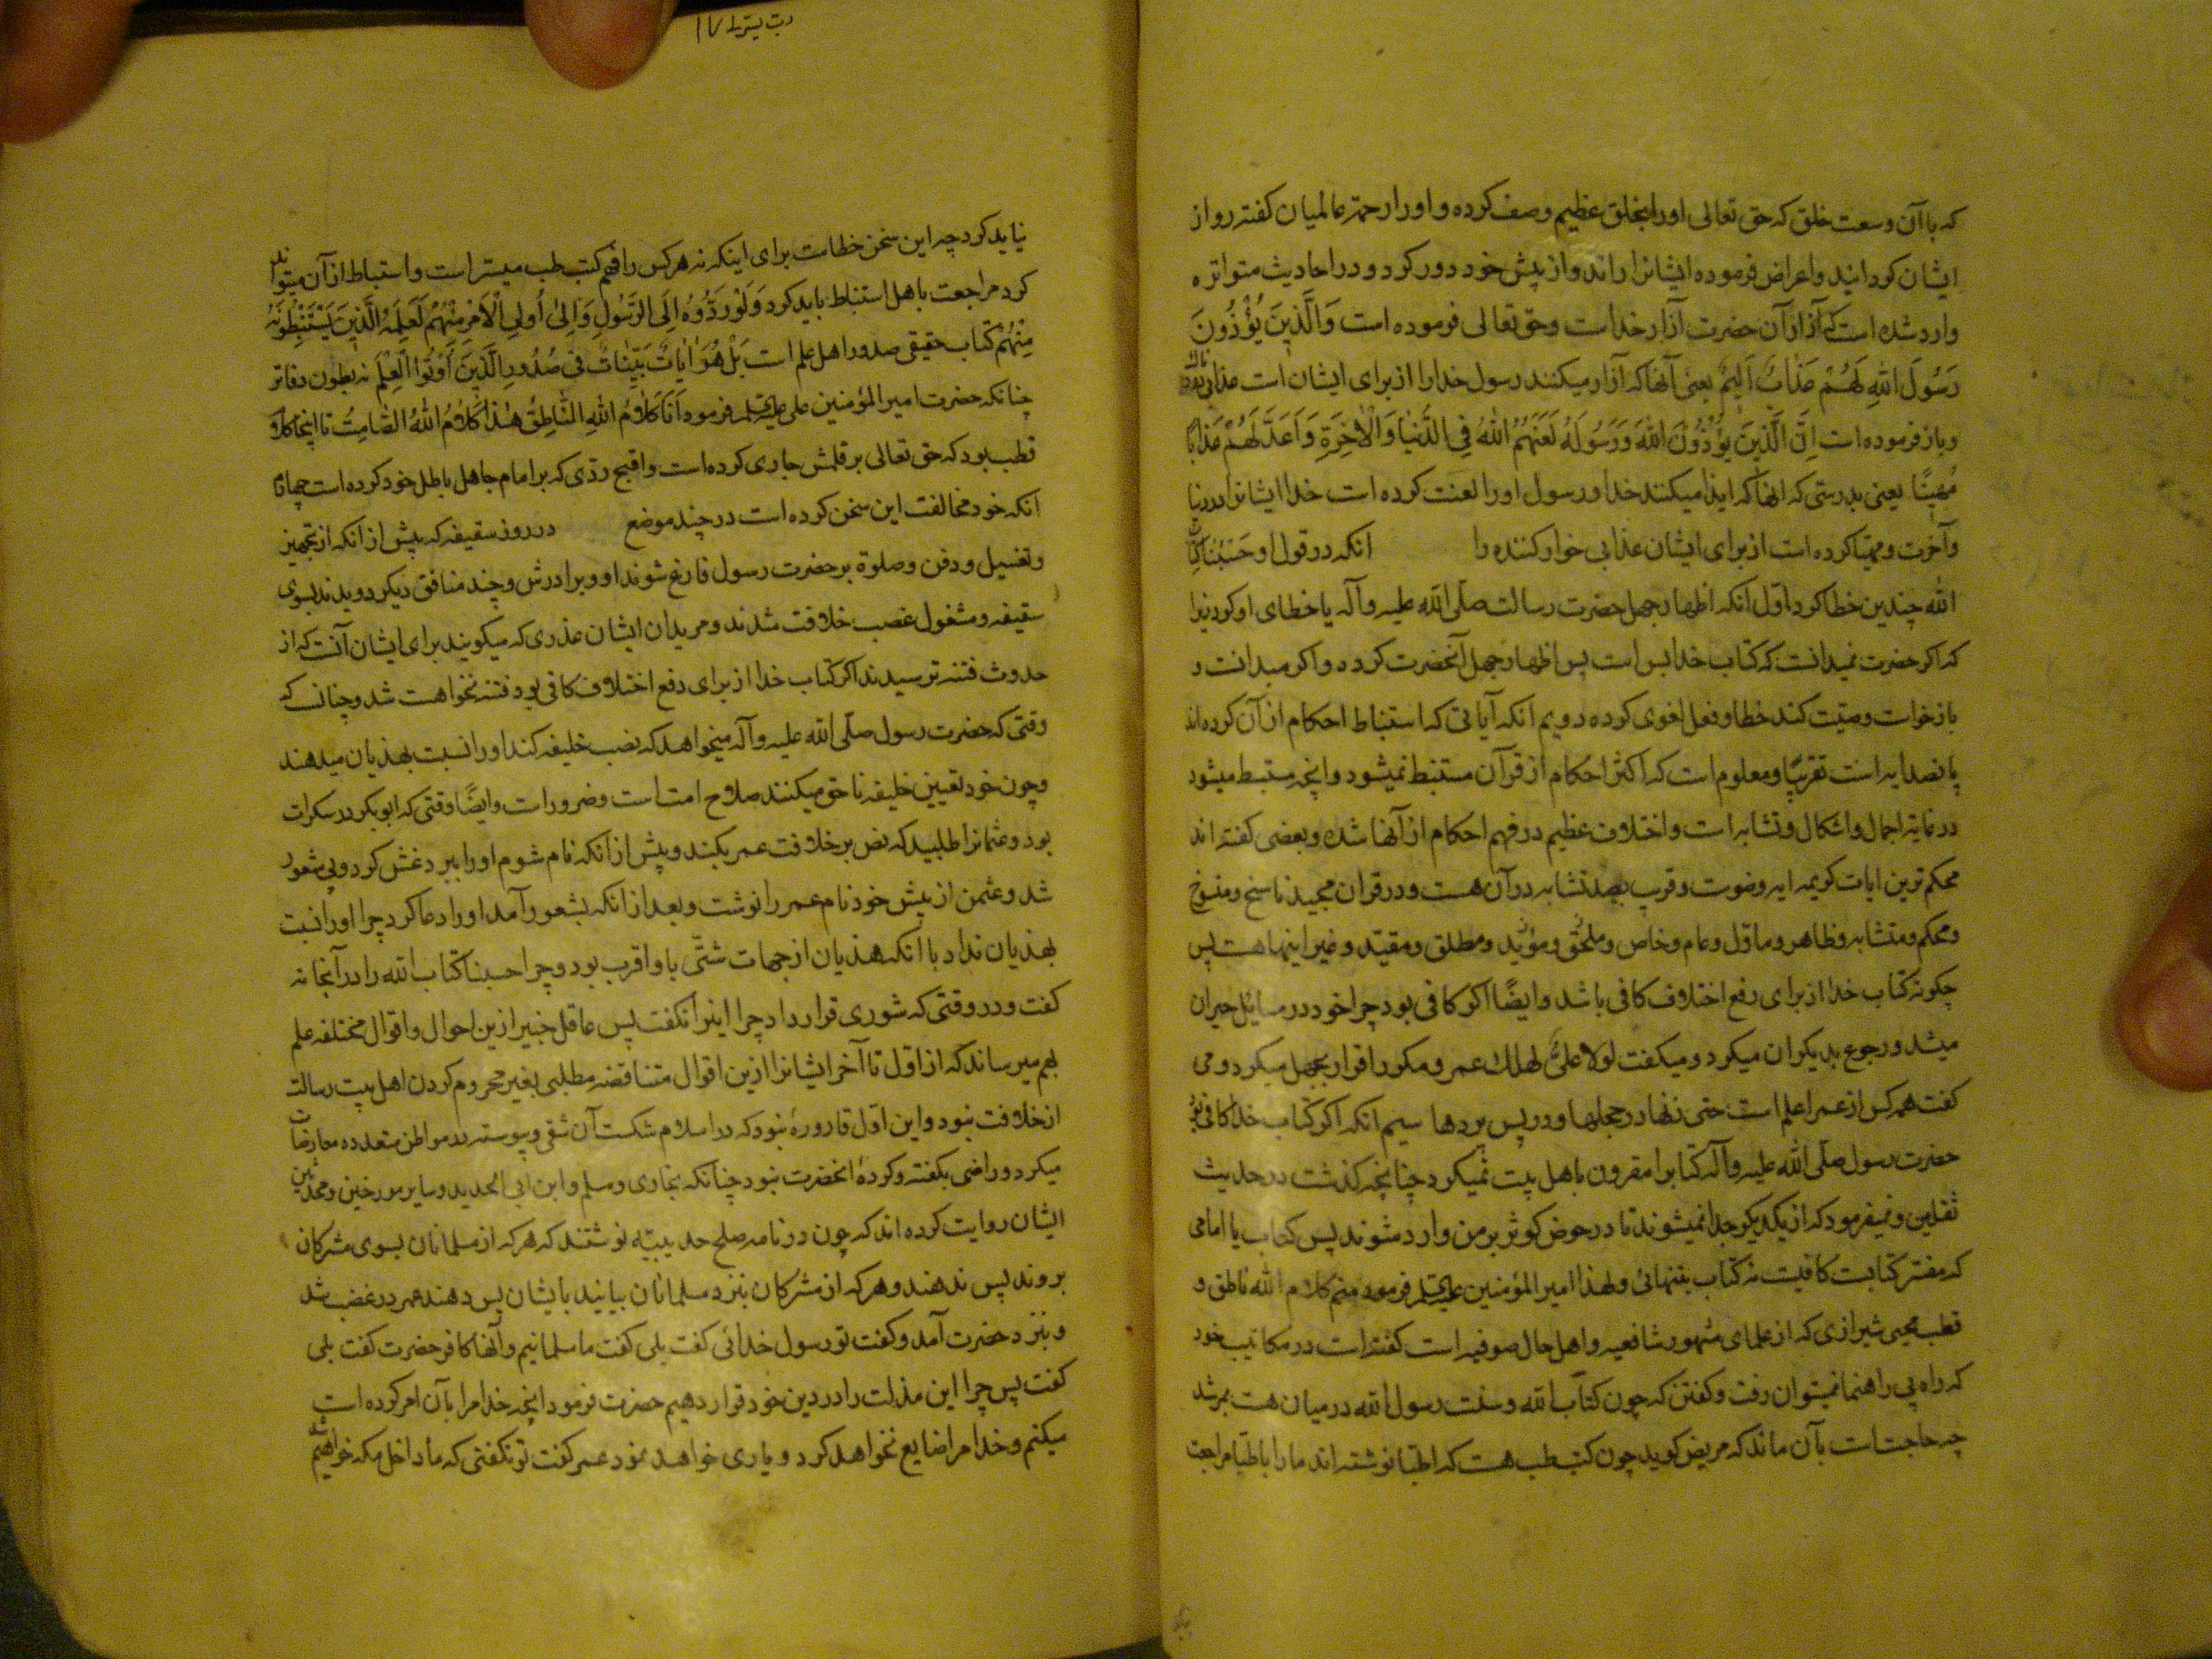 که باآن وسعت خلق که حق تعالی اورا بخلق عظیم وصف کرده و اورا رحمة عالمیان کفته رو از
ایشان کردانید واعراض فرموده ایشانرا راند واز پیش خود دور کرد و در احادیث متواتره
وارد شده است که آزار آن حضرت آزار خداست وحق تعالی فرموده است وَالَّذِینَ یُؤْذُونَ
رَسُولَ اللهِ لَهُمْ عَذَابٌ اَلِیمٌ یعنی آنها که آزار میکنند رسول خدا را از برای ایشان است عذابی
وباز فرموده است اِنَّ الَّذِینَ یُؤْذُونَ اللهَ وَرَسُولَهُ لَعَنَهُمُ اللهُ فِی الدُّنْیَا وَالْاٰخِرَةِ وَاَعَدَّ لَهُمْ عَذَابًا
مُهِینًا یعنی بدرستی که انها که ایذا میکنند خدا و رسول اورا لعنت کرده است خدا ایشانرا در دنیا
وآخرت ومهیا کرده است از برای ایشان عذابی خوار کننده را انکه در قول او حَسْبُنَا کِتَابُ
الله چندین خطا کرد اوّل انکه اظهار جهل حضرت رسالت صلّی الله علیه وآله یا خطای او کرد زیرا
که اکر حضرت نمیدانست که کتاب خدا بس است پس اظهار جهل آنحضرت کرده و اکر میدانست و
بازخواست وصیّت کند خطا و فعل لغوی کرده دویم انکه آیاتی که استنباط احکام از آن کرده اند
پانصد ایه است تقریبًا ومعلوم است که اکثر احکام از قرآن مستنبط نمیشود وانچه مستنبط میشود
در غایة اجمال واشکال وتشابه است واختلاف عظیم در فهم احکام از آنها شده وبعضی کفته اند
محکم ترین ایات کریمه ایه وضوست وقریب بصد تشابه در آن هست ودر قران مجید ناسخ ومنسوخ
ومحکم ومتشابه وظاهر وماوّل وعام وخاص و ومطلق ومقیّد وغیر اینها هست پس
چکونه کتاب خدا از برای رفع اختلاف کافی باشد وایضًا اکر کافی بود چرا خود در مسایل حیران
میشد ورجوع بدیکران میکرد ومیکفت لولا علیٌّ لهلک عمر ومکرر اقرار بجهل میکرد ومی
کفت همه کس از عمر اعلم است حتی زنها در حجلها و در پس پردها سیم انکه اکر کتاب خدا کافی بود
حضرت رسول صلّی الله علیه وآله کتابرا مقرون باهل بیت نمیکرد چنانچه کذشت در حدیث
ثقلین ونمیفرمود که از یکدیکر جدا نمیشوند تا در حوض کوثر بر من وارد شوند پس کتاب با امامی
که مفسّر کتابست کافیست نه کتاب بتنهائی ولهذا امیر المؤمنین علیه السلام فرمود منم کلام الله ناطق و
قطب محیی شیرازی که از علمای مشهور شافعیه واهل حال صوفیه است کفته است در مکاتیب خود
که راه بی راهنما نمیتوان رفت وکفتن که چون کتاب الله وسنت رسول الله در میان هست بمرشد
چه حاجتست بآن ماند که مریض کوید چون کتب طب هست که اطبا نوشته اند مارا باطبّا مراجعت
نباید کرد چه این سخن خطاست برای اینکه نه هر کس را فهم کتب طب میسّر است واستنباط از آن میتواند
کرد مراجعت باهل استنباط باید کرد وَلَوْ رَدُّوهُ اِلَی الرَّسُولِ وَاِلیٰ اُولِی الْاَمْرِ مِنْهُمْ لَعَلِمَهُ الَّذِینَ یَسْتَنْبِطُونَهُ
مِنْهُمْ کتاب حقیقی صدور اهل علم است بَلْ هُوَ اٰیَاتٌ بَیِّنَاتٌ فِی صُدُورِ الَّذِینَ اُوتُوا الْعِلْمَ نه بطون دفاتر
چنانکه حضرت امیر المؤمنین علی علیه السلام فرمود اَنَا کَلَامُ اللهِ النَّاطِقُ هٰذَا کَلَامُ اللهِ الصَّامِتُ تا اینجا کلام
قطب بود که حق تعالی بر قلمش جاری کرده است واقبح ردّی که بر امام جاهل باطل خود کرده است چهارم
انکه خود مخالفت این سخن کرده است در چند موضع در روز سقیفه که پیش از انکه از تجهیز
وتغسیل ودفن وصلوة بر حضرت رسول فارغ شوند او وبرادرش وچند منافق دیکر دویدند بسوی
سقیفه ومشغول غصب خلافت شدند ومریدان ایشان عذری که میکویند برای ایشان آنست که از
حدوث فتنه ترسیدند اکر کتاب خدا از برای دفع اختلاف کافی بود فتنه نخواهست شد وچنانست که
وقتی که حضرت رسول صلّی الله علیه وآله میخواهد که نصب خلیفه کند اورا نسبت بهذیان میدهند
وچون خود تعیین خلیفه ناحق میکنند صلاح امت است وضرور است وایضًا وقتی که ابو بکر در سکرات
بود وعثمانرا طلبید که نص بر خلافت عمر بکند وپیش از انکه نام شوم اورا ببرد غش کرد وبی شعور
شد وعثمن از پیش خود نام عمر را نوشت وبعد از انکه بشعور آمد اورا دعا کرد چرا اورا نسبت
بهذیان نداد با انکه هذیان از جهات شتّی باو اقرب بود وچرا حسبنا کتاب الله را در آنجا نه
کفت ودر وقتی که شوری قرار داد چرا اینرا نکفت پس عاقل خبیر از این احوال واقوال مختلفه علم
بهم میرساند که از اوّل تا آخر ایشانرا ازین اقوال متناقضه مطلبی بغیر محروم کردن اهل بیت رسالت
از خلافت نبود واین اوّل قارورهٔ نبود که در اسلام شکست آن شقی وپیوسته در مواطن متعدده معارضات
میکرد وراضی بکفته وکردهٔ انحضرت نبود چنانکه بخاری ومسلم وابن ابی الحدید وسایر مورخین ومحدثین
ایشان روایت کرده اند که چون در نامه صلح حدیبیّه نوشتند که هر که از مسلمانان بسوی مشرکان
بروند پس ندهند وهر که از مشرکان بنزد مسلمانان بیایند بایشان پس دهند عمر در غضب شد
وبنزد حضرت آمد وکفت تو رسول خدائی کفت بلی کفت ما مسلمانیم وآنها کافر حضرت کفت بلی
کفت پس چرا این مذلت را در دین خود قرار دهیم حضرت فرمود انچه خدا مرا بآن امر کرده است
میکنم وخدا مرا ضایع نخواهد کرد ویاری خواهد نمود عمر کفت تو نکفتی که ما داخل مکه خواهیم شد